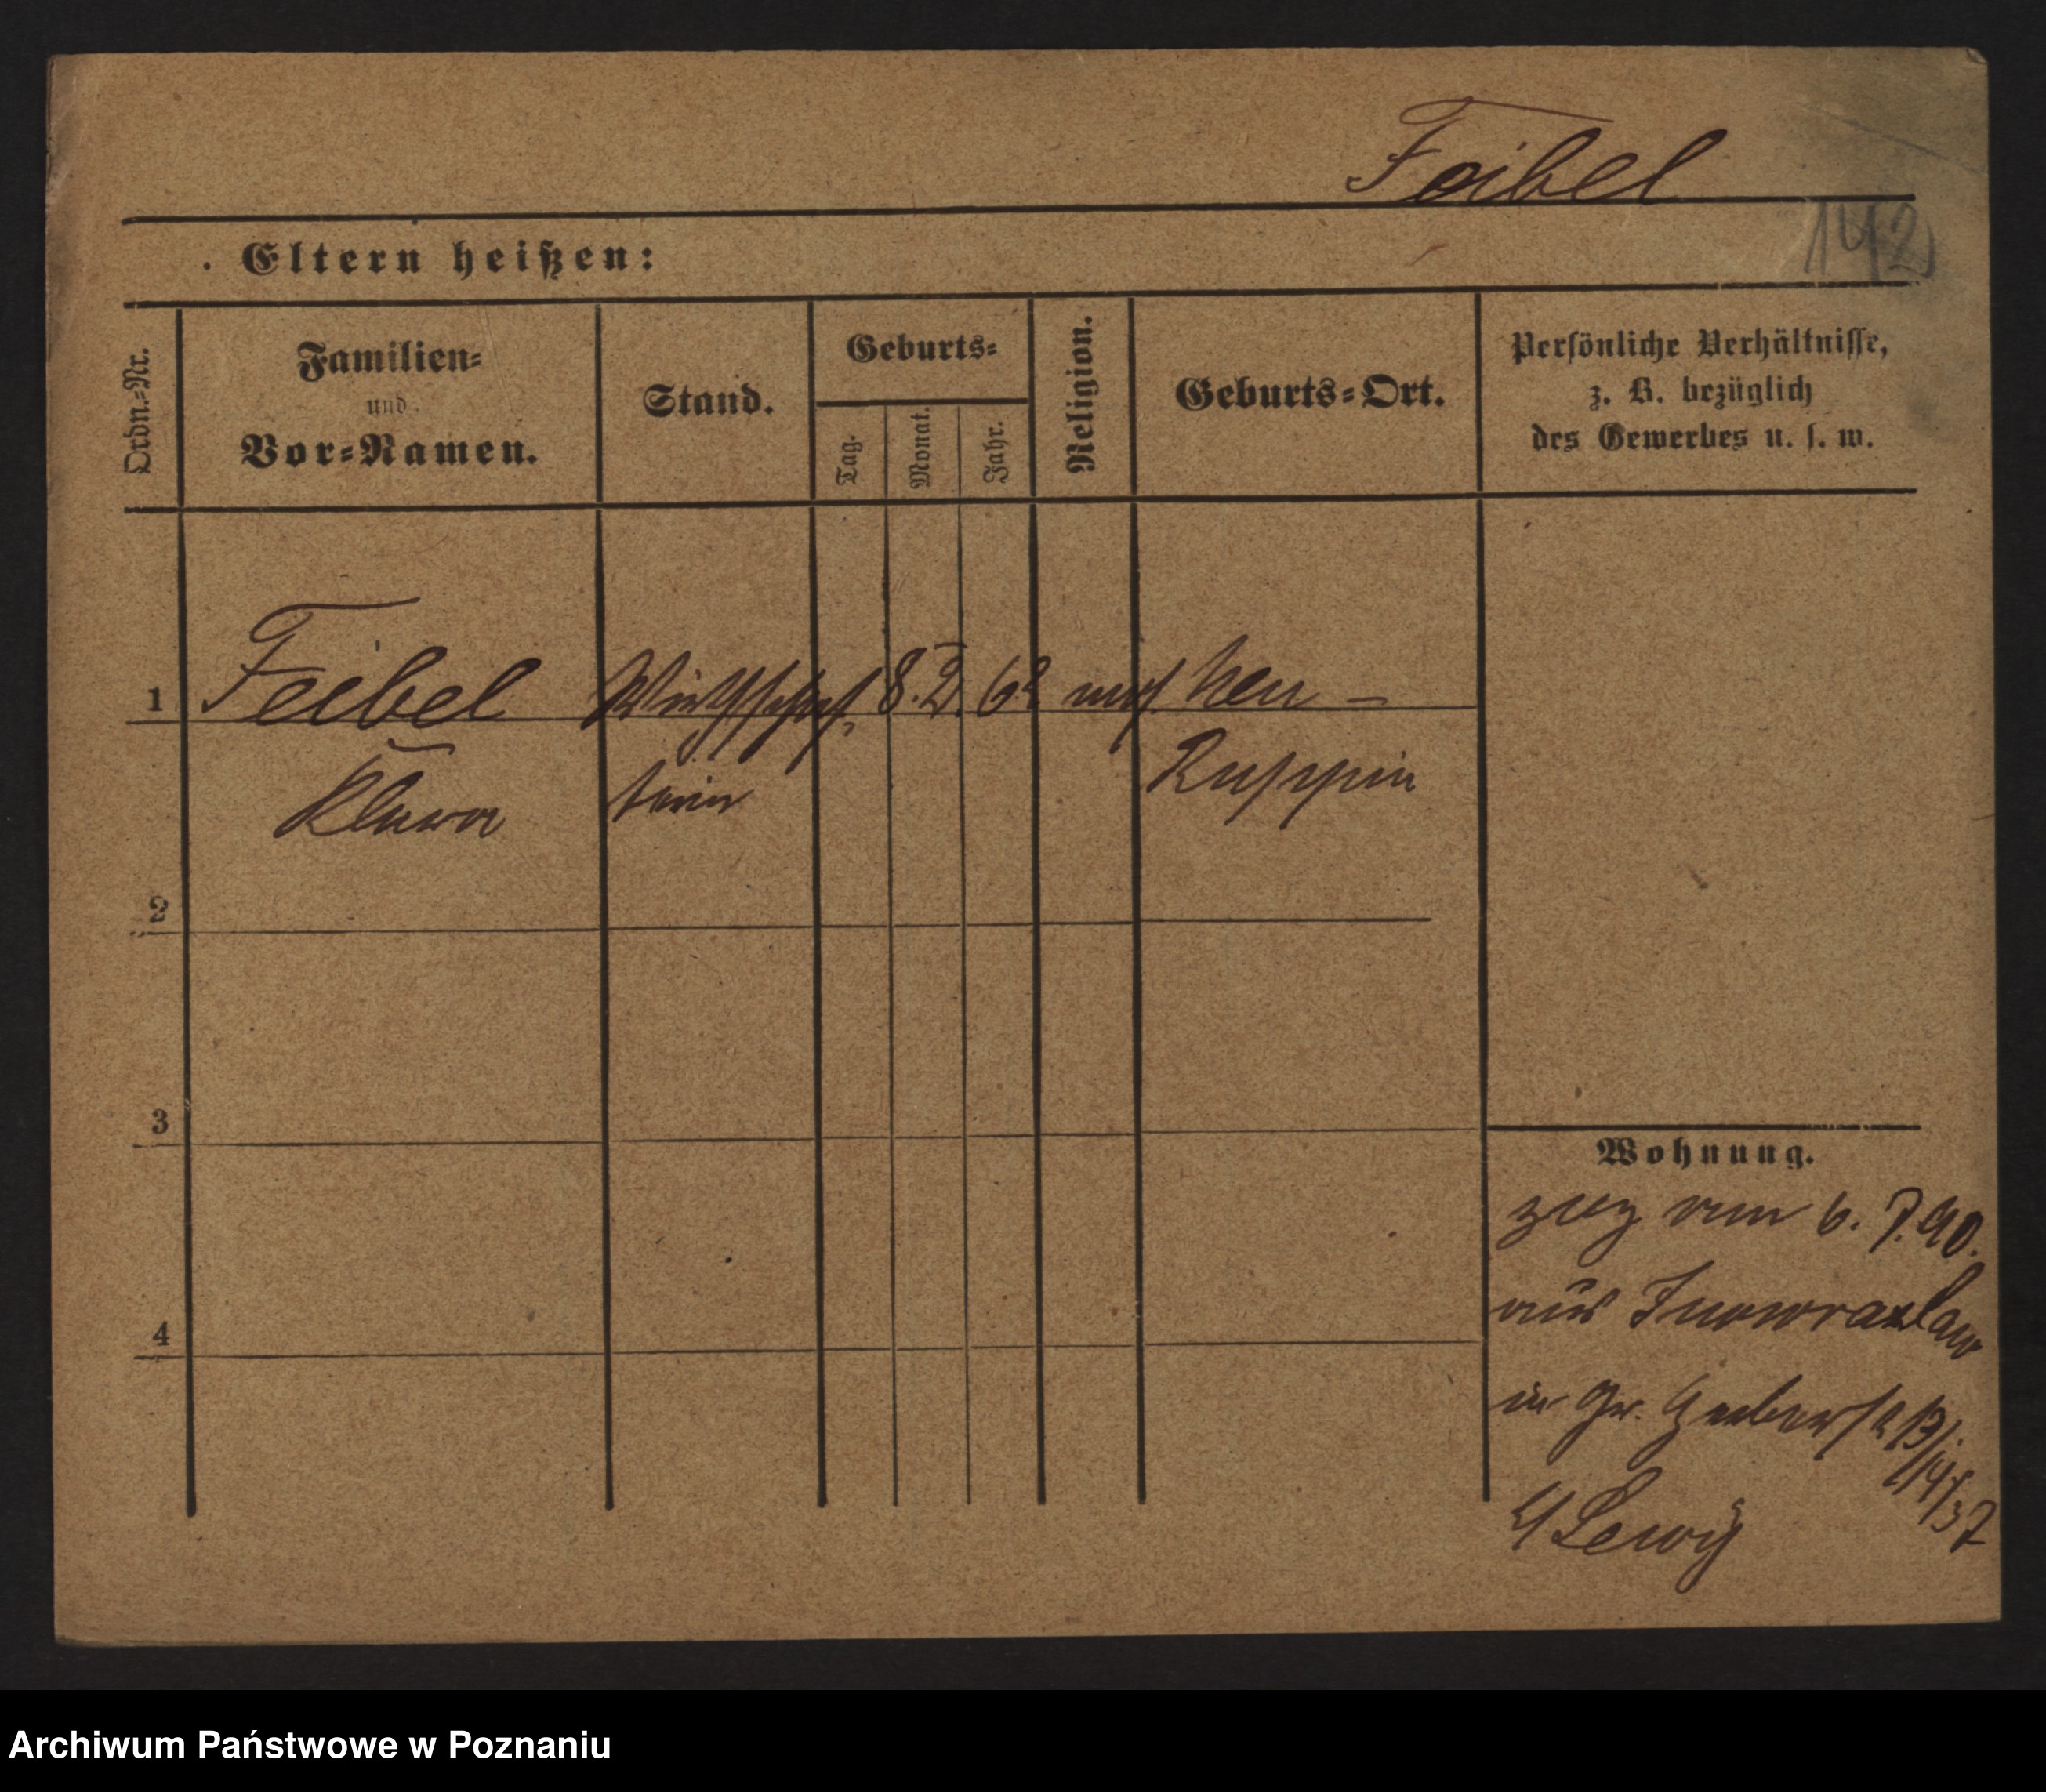 Feibel
142
Eltern heißen:
Ordn.-Nr.
Familien-
und
Vor-Namen.
Stand.
Geburts-
Tag.
Monat.
Jahr.
Religion.
Geburts-Ort.
Persönliche Verhältnisse,
z. B. bezüglich
des Gewerbes u. s. w.
1 Feibel Wirthschaf 8. 2. 62 mos. Neu-
Klara terin Ruppin
2
3
4
Wohnung.
zug vom 6. 7. 90.
aus Inowrazlaw
in Gr. Gerberstr
Lewy
Archiwum Państwowe w Poznaniu